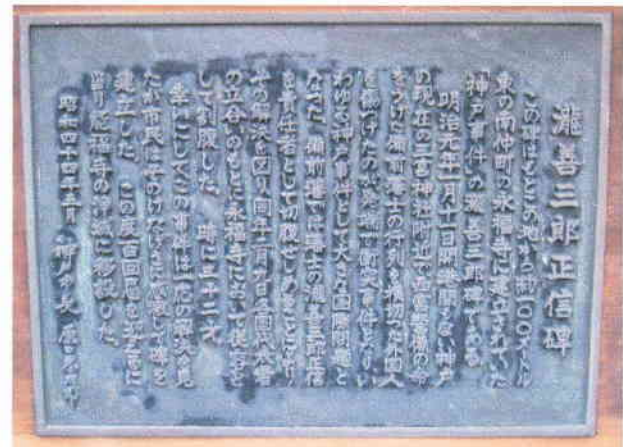 瀧善三郎正信碑
この碑はもとこの地から約一〇〇メートル
東の南仲町の永福寺に建立されていた
神戸事件の瀧善三郎の碑である
明治元年一月十一日開港間もない神戸
の現在の三宮神社附近で西宮警備の命
をうけた備前藩士の行列を横切った外国人
を傷つけたのが発端で衝突事件となりい
わゆる神戸事件として大きな国際問題と
なった 備前藩では藩士の瀧善三郎正信
を責任者として切腹せしめることにより
その解決を図り同年二月九日各国代表者
の立合いのもとに永福寺において従容と
して割腹した。 時に三十二才。
幸いにしてこの事件は一応の解決を見
たが市民はそのけたかさに感激して碑を
建立した。 この度百回忌を迎えるに
当り能福寺の浄域に移設した。
昭和四十四年五月 神戸市長